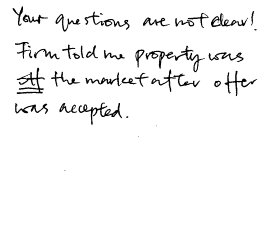 Your questions are not clear!
Firm told me property was
off the market after offer
was accepted.